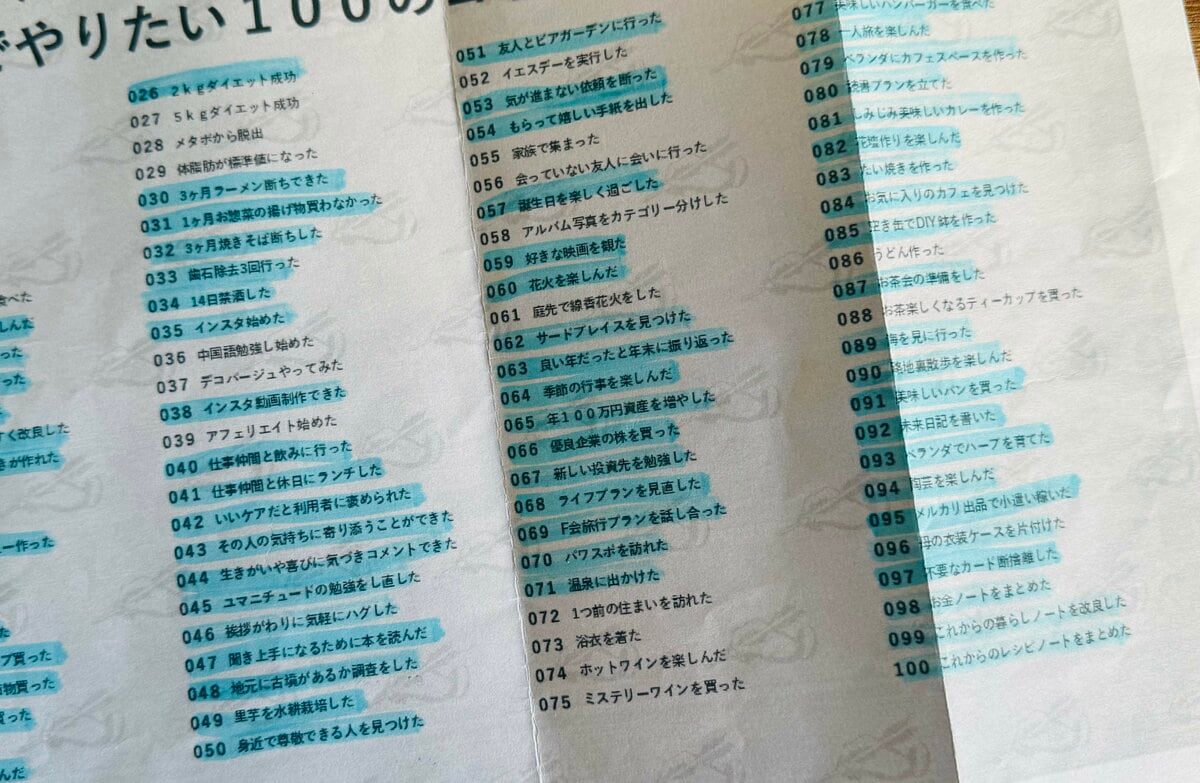 でやりたい１００の
食べた
しんだ
った
った
すく改良した
きが作れた
ー作った
プ買った
買った
買った
んだ
026 ２ｋｇダイエット成功
027 ５ｋｇダイエット成功
028 メタボから脱出
029 体脂肪が標準値になった
030 3ヶ月ラーメン断ちできた
031 1ヶ月お惣菜の揚げ物買わなかった
032 3ヶ月焼きそば断ちした
033 歯石除去3回行った
034 14日禁酒した
035 インスタ始めた
036 中国語勉強し始めた
037 デコパージュやってみた
038 インスタ動画制作できた
039 アフェリエイト始めた
040 仕事仲間と飲みに行った
041 仕事仲間と休日にランチした
042 いいケアだと利用者に褒められた
043 その人の気持ちに寄り添うことができた
044 生きがいや喜びに気づきコメントできた
045 ユマニチュードの勉強をし直した
046 挨拶がわりに気軽にハグした
047 聞き上手になるために本を読んだ
048 地元に古墳があるか調査をした
049 里芋を水耕栽培した
050 身近で尊敬できる人を見つけた
051 友人とビアガーデンに行った
052 イエスデーを実行した
053 気が進まない依頼を断った
054 もらって嬉しい手紙を出した
055 家族で集まった
056 会っていない友人に会いに行った
057 誕生日を楽しく過ごした
058 アルバム写真をカテゴリー分けした
059 好きな映画を観た
060 花火を楽しんだ
061 庭先で線香花火をした
062 サードプレイスを見つけた
063 良い年だったと年末に振り返った
064 季節の行事を楽しんだ
065 年１００万円資産を増やした
066 優良企業の株を買った
067 新しい投資先を勉強した
068 ライフプランを見直した
069 F会旅行プランを話し合った
070 パワスポを訪れた
071 温泉に出かけた
072 1つ前の住まいを訪れた
073 浴衣を着た
074 ホットワインを楽しんだ
075 ミステリーワインを買った
077 美味しいハンバーガーを食べた
078 一人旅を楽しんだ
079 ベランダにカフェスペースを作った
080 読書プランを立てた
081 しみじみ美味しいカレーを作った
082 花壇作りを楽しんだ
083 たい焼きを作った
084 お気に入りのカフェを見つけた
085 空き缶でDIY鉢を作った
086 うどん作った
087 お茶会の準備をした
088 お茶楽しくなるティーカップを買った
089 海を見に行った
090 路地裏散歩を楽しんだ
091 美味しいパンを買った
092 未来日記を書いた
093 ベランダでハーブを育てた
094 陶芸を楽しんだ
095 メルカリ出品で小遣い稼いだ
096 母の衣装ケースを片付けた
097 不要なカード断捨離した
098 お金ノートをまとめた
099 これからの暮らしノートを改良した
100 これからのレシピノートをまとめた